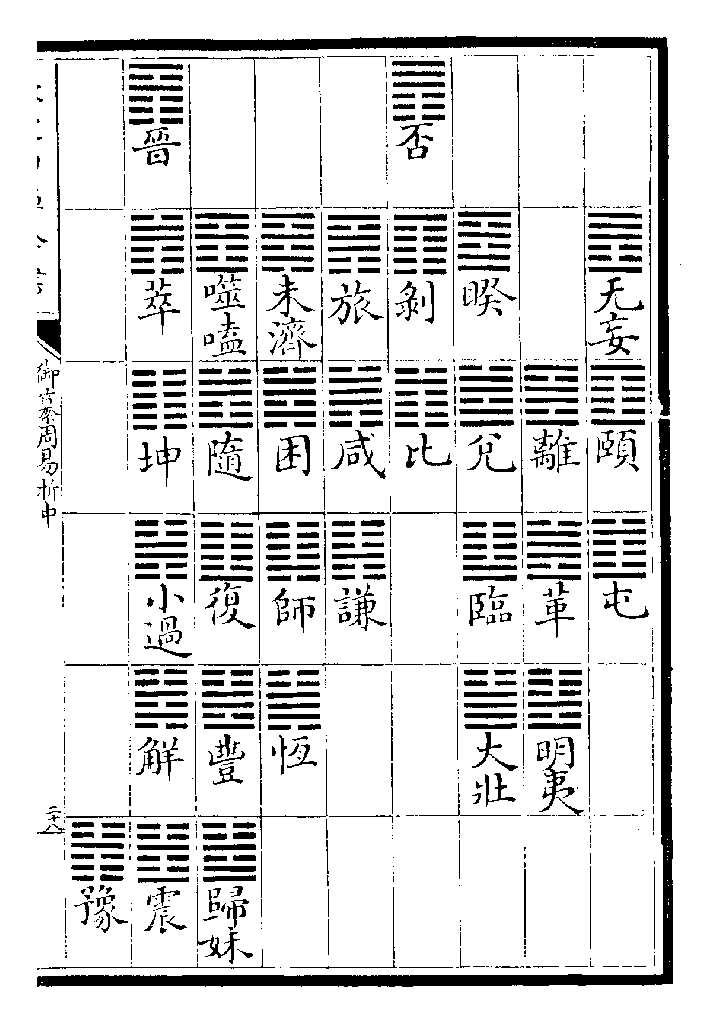 无妄
頤
屯
離
革
明夷
睽
兌
臨
大壯
否
剝
比
旅
咸
謙
未濟
困
師
恆
噬嗑
隨
復
豐
歸妹
晉
萃
坤
小過
解
震
豫
御纂周易折中
二十八